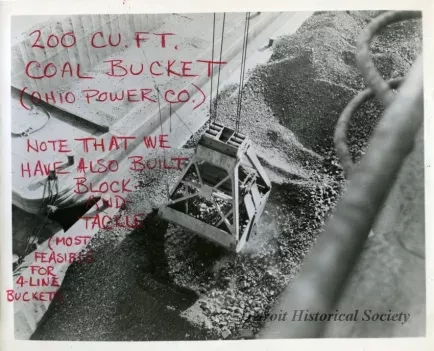 200 CU. FT.
COAL BUCKET
(OHIO POWER CO.)
NOTE THAT WE
HAVE ALSO BUILT
BLOCK
AND
TACKLE
(MOST
FEASIBLE
FOR
4-LINE
BUCKETS
Detroit Historical Society